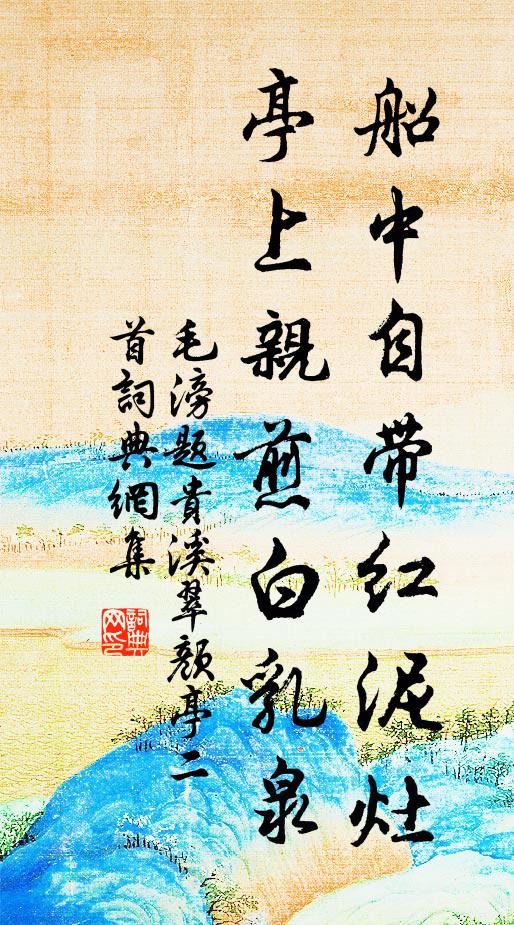 船中自带红泥灶
亭上親煎白乳泉
毛滂题貴溪翠颜亭二
首詞典網集
詞典
网印